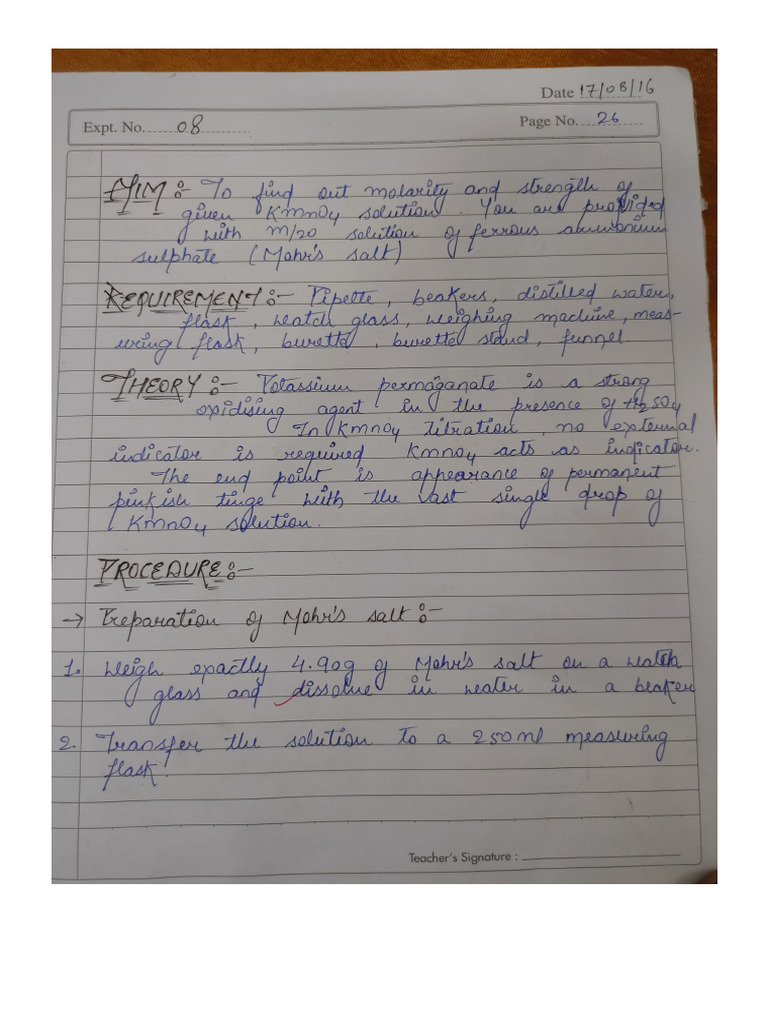 Date 17/08/16
Expt. No. 08
Page No. 26
AIM :- To find out molarity and strength of
given KMnO4 solution. You are provided
with M/20 solution of ferrous ammonium
sulphate (Mohr's salt)
REQUIREMENT :- Pipette, beakers, distilled water,
flask, watch glass, weighing machine, meas-
uring flask, burette, burette stand, funnel.
THEORY :- Potassium permaganate is a strong
oxidising agent in the presence of H2SO4
In KMnO4 titration, no external
indicator is required KMnO4 acts as indicator.
The end point is appearance of permanent
pinkish tinge with the last single drop of
KMnO4 solution.
PROCEDURE :-
→ Preparation of Mohr's salt :-
1. Weigh exactly 4.90g of Mohr's salt on a watch
glass and dissolve in water in a beaker
2. Transfer the solution to a 250ml measuring
flask.
Teacher's Signature :